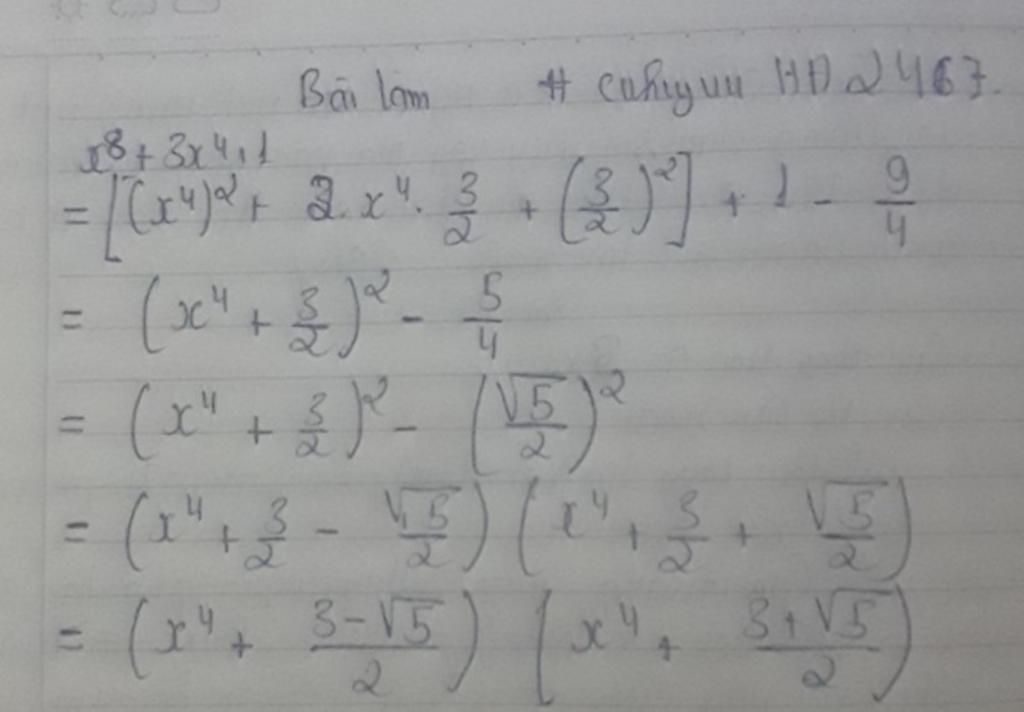 Bài làm # cuheyuu HĐ2467.
x⁸ + 3x⁴ + 1
= [(x⁴)² + 2. x⁴. 3/2 + (3/2)²] + 1 - 9/4
= (x⁴ + 3/2)² - 5/4
= (x⁴ + 3/2)² - (√5/2)²
= (x⁴ + 3/2 - √5/2) (x⁴ + 3/2 + √5/2)
= (x⁴ + (3-√5)/2) (x⁴ + (3+√5)/2)